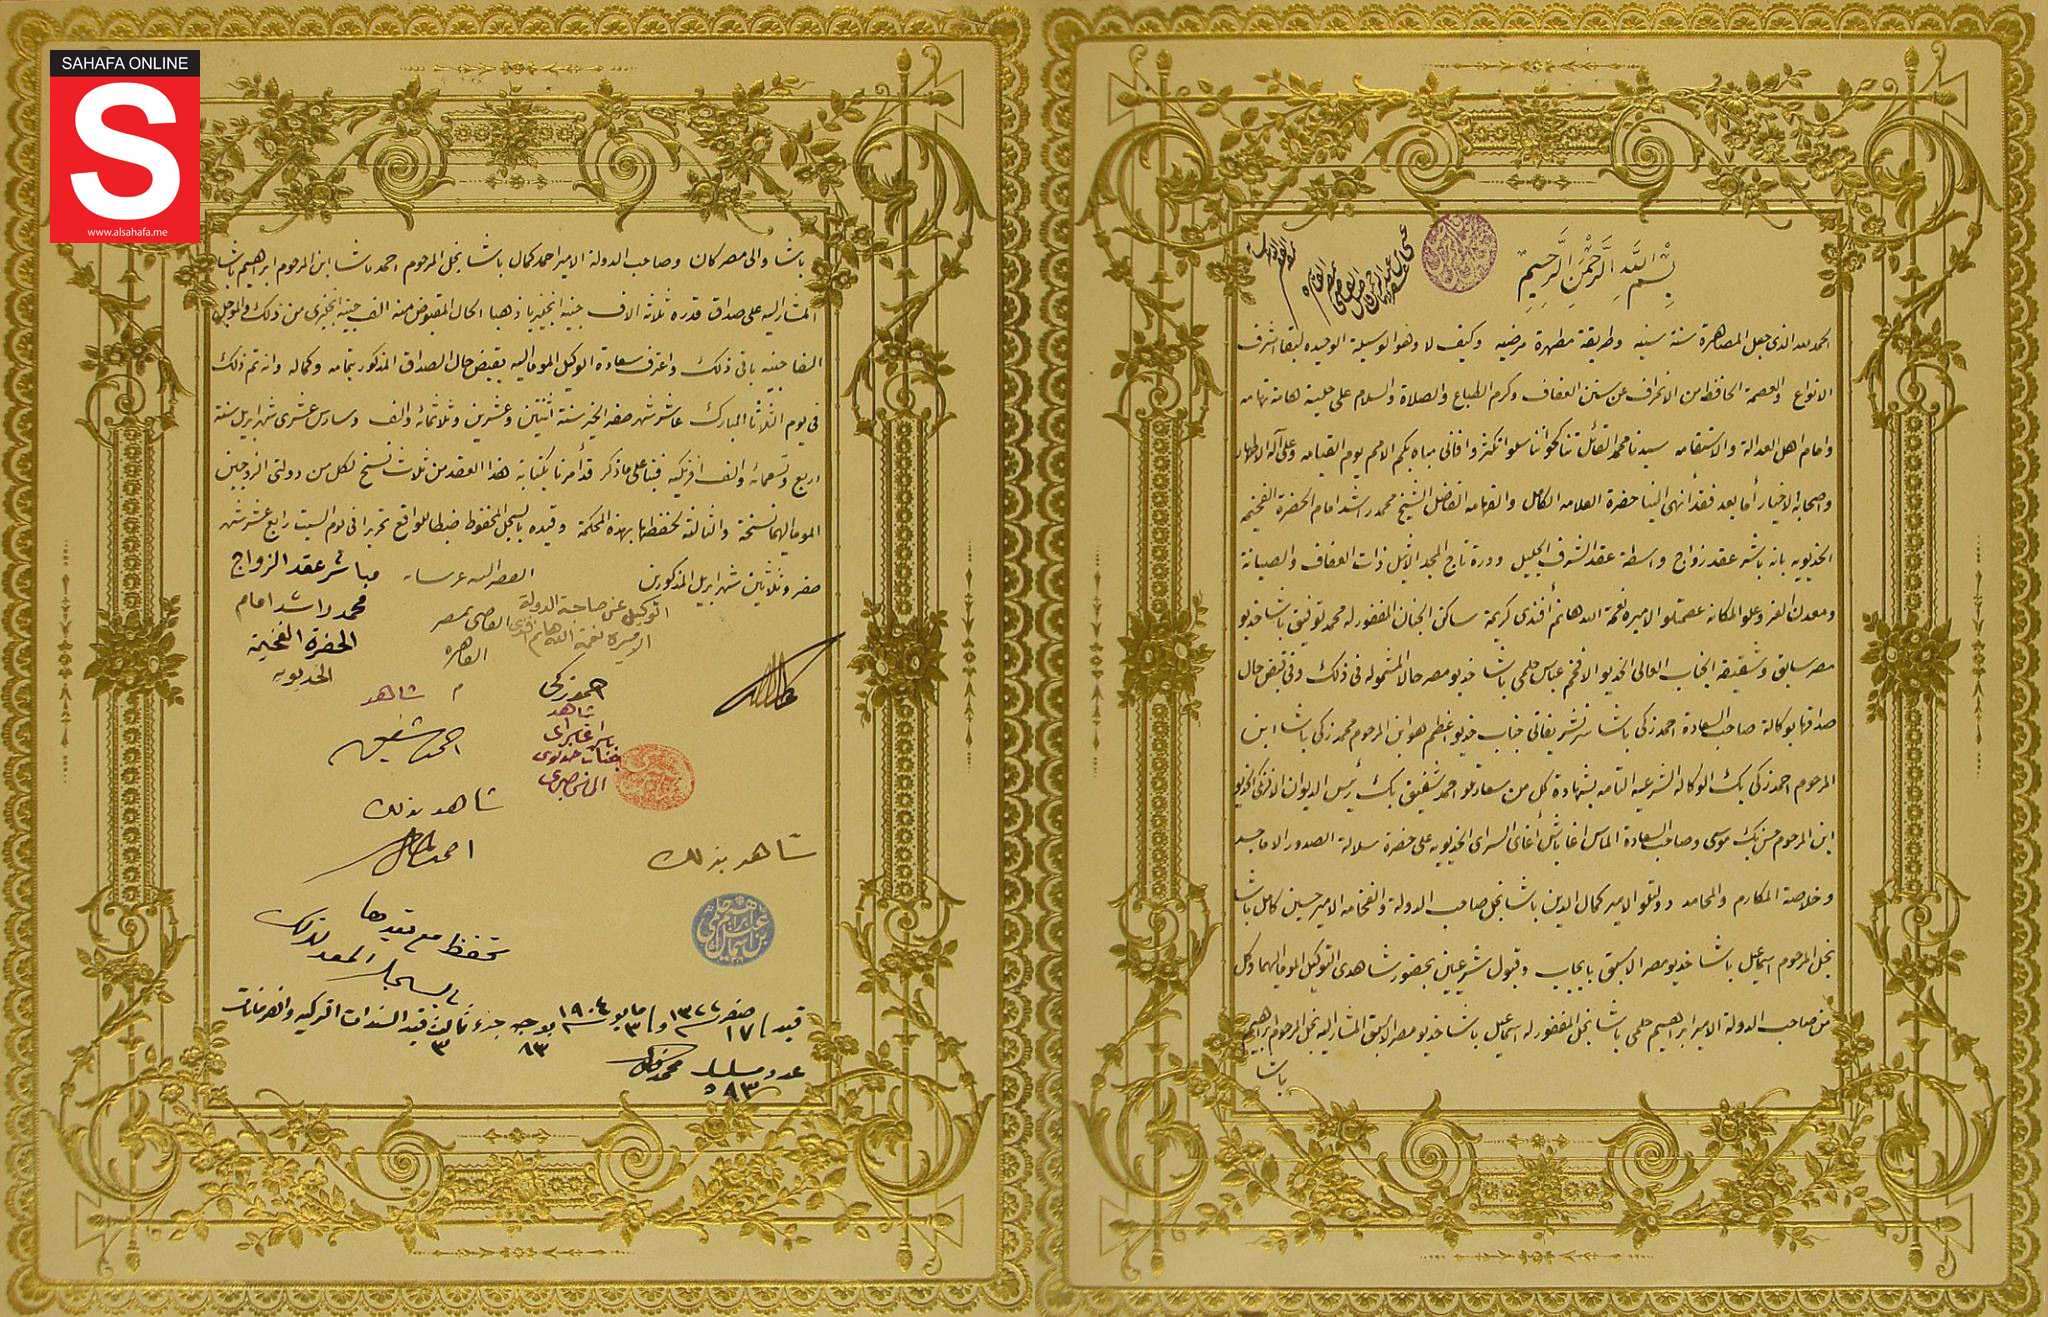 SAHAFA ONLINE
S
www.alsahafa.me
بِسْمِ اللهِ الرَّحْمٰنِ الرَّحِيمِ
الحمد لله الذى جعل المصاهرة سنة سنيه وطريقة مطهرة مرضيه وكيف لا وهو الوسيلة الوحيده لبقا اشرف
الانواع والعصمة الحافظة من الانحراف عن سنن العفاف وكرم الطباع والصلاة والسلام على حلية هامة تهامه
وامام اهل العدالة والاستقامه سيدنا محمد القائل تناكحوا تناسلوا تكثروا فانى مباه بكم الامم يوم القيامه وعلى آله الاطهار
واصحابه الاخيار أما بعد فقد أنهى الينا حضرة العلامه الكامل والفهامه الفاضل الشيخ محمد راشد امام الحضرة الفخيمه
الخديويه بانه باشر عقد زواج واسطة عقد الشرف الجليل ودرة تاج المجد الاثيل ذات العفاف والصيانة
ومعدن العز وعلو المكانه عصمتلو الاميره نعمة الله هانم أفندى كريمة ساكن الجنان المغفور له محمد توفيق باشا خديو
مصر سابق وشقيقة الجناب العالى الخديو الأفخم عباس حلمى باشا خديو مصر حالا المشموله فى ذلك وفى قبض حال
صداقها بوكالة صاحب السعادة احمد زكى باشا سر تشريفاتى جناب خديو اعظم هو ابن المرحوم محمد زكى باشا ابن
المرحوم احمد زكى بك الوكالة الشرعيه التامه بشهادة كل من سعادتلو احمد شفيق بك رئيس الديوان الافرنكى الخديو
ابن المرحوم حسن بك موسى وصاحب السعادة الماس اغا باش أغاى السراى الخديويه على حضرة سلالة الصدور الاماجد
وخلاصة المكارم والمحامد دولتلو الامير كمال الدين باشا نجل صاحب الدولة والفخامه الامير حسين كامل باشا
نجل المرحوم اسماعيل باشا خديو مصر الاسبق بايجاب وقبول شرعيين بحضور شاهدى التوكيل الموما اليهما وكل
من صاحب الدولة الامير ابراهيم حلمى باشا نجل المغفور له اسماعيل باشا خديو مصر الاسبق المشار اليه نجل المرحوم ابراهيم
باشا
باشا والى مصر كان وصاحب الدولة الامير احمد كمال باشا نجل المرحوم احمد باشا ابن المرحوم ابراهيم باشا
المشار اليه على صداق قدره ثلاثة الاف جنيه انجليزيا ذهبا الحال المقبوض منه الف جنيه انجليزى من ذلك والموجل
الفا جنيه باقى ذلك واعترف سعادة الوكيل الموما اليه بقبض حال الصداق المذكور بتمامه وكماله وانه تم ذلك
فى يوم الثلاثا المبارك عاشر شهر صفر الخير سنة اثنتين وعشرين وثلاثمائة والف وسادس عشرى شهر ابريل سنة
اربع وتسعمائة والف افرنكيه فبنا على ماذكر قد أمرنا بكتابة هذا العقد من ثلاث نسخ لكل من دولتى الزوجين
الموما اليهما نسخة والثالثة لحفظها بهذه المحكمة وقيده بالسجل المحفوظ ضبطا للواقع تحريرا فى يوم السبت رابع عشر شهر
صفر وثلاثين شهر ابريل المذكورين
مباشر عقد الزواج
محمد راشد امام
الحضرة الفخيمة
الخديويه
القاضى بمصر
القاهره
التوكيل عن صاحبة الدولة
الاميره نعمة الله هانم افندى
احمد زكى
شاهد
احمد شفيق
شاهد
شاهد بذلك
شاهد بذلك
تحفظ مع قيدها
بالسجل المعد لذلك
قيد ١٧ صفر سنة ١٣٢٢ و ٣ مايو سنة ١٩٠٤ بوجه ٨٣ جزء ثالث ٣ قيد السندات التركيه والفرمانات
عدد مسلسل
٥٩٣